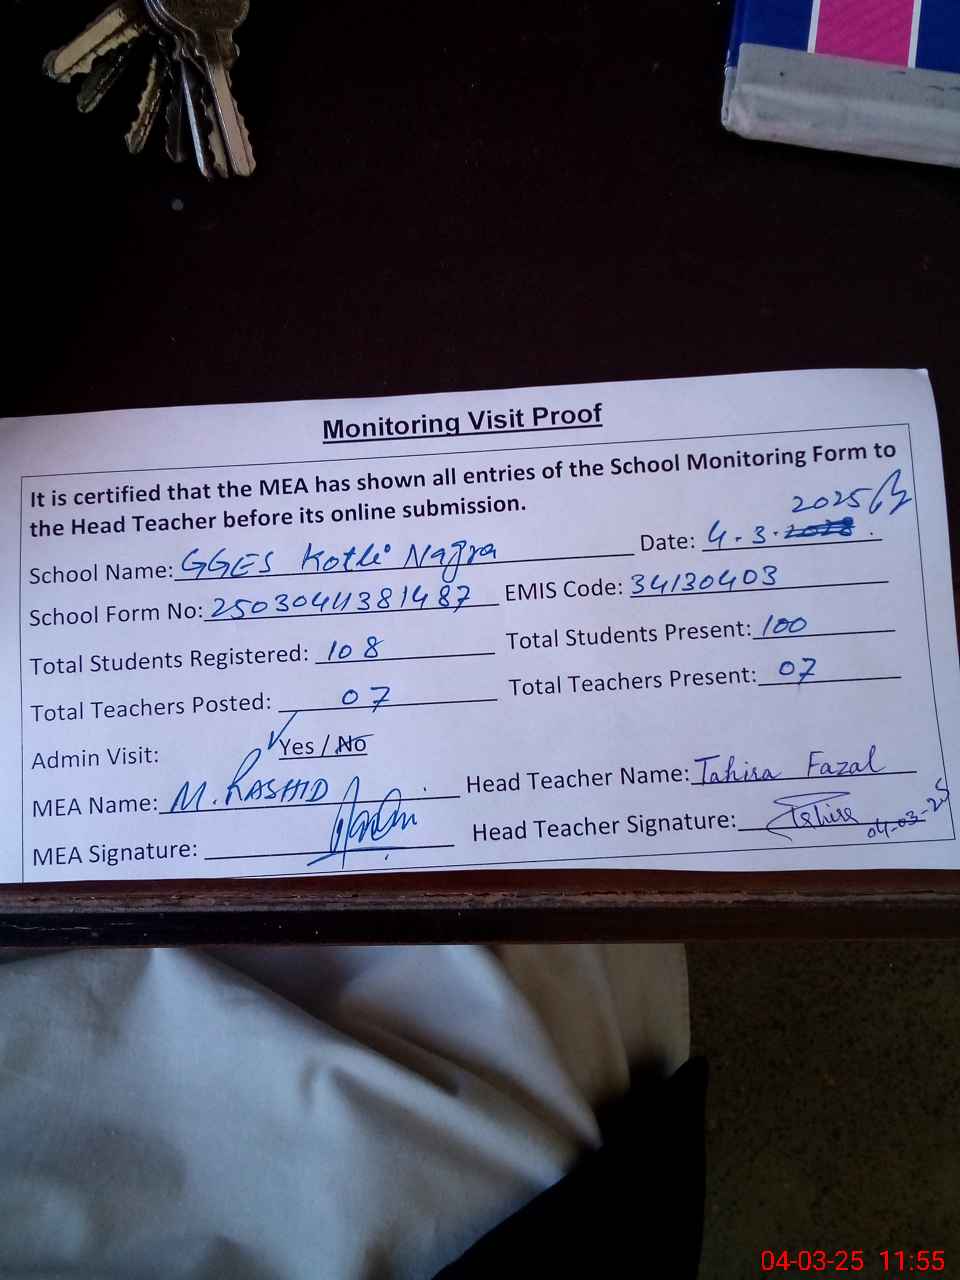 Monitoring Visit Proof
It is certified that the MEA has shown all entries of the School Monitoring Form to
the Head Teacher before its online submission.
2025
School Name: GGES Kotli Nagra Date: 4.3.
School Form No: 25030441381487 EMIS Code: 34130403
Total Students Registered: 108 Total Students Present: 100
Total Teachers Posted: 07 Total Teachers Present: 07
Admin Visit: Yes / No
MEA Name: M. RASHID Head Teacher Name: Tahira Fazal
MEA Signature: Head Teacher Signature: Tahira 04-03-25
04-03-25 11:55